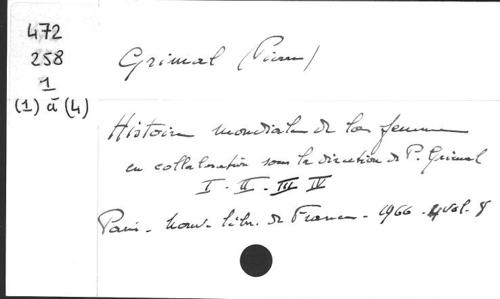 472
258
1
(1) à (4)
Grimal (Pierre)
Histoire mondiale de la femme
en collaboration sous la direction de P. Grimal
I - II - III IV
Paris - Nouv. libr. de France - 1966 - 4 vol. 8